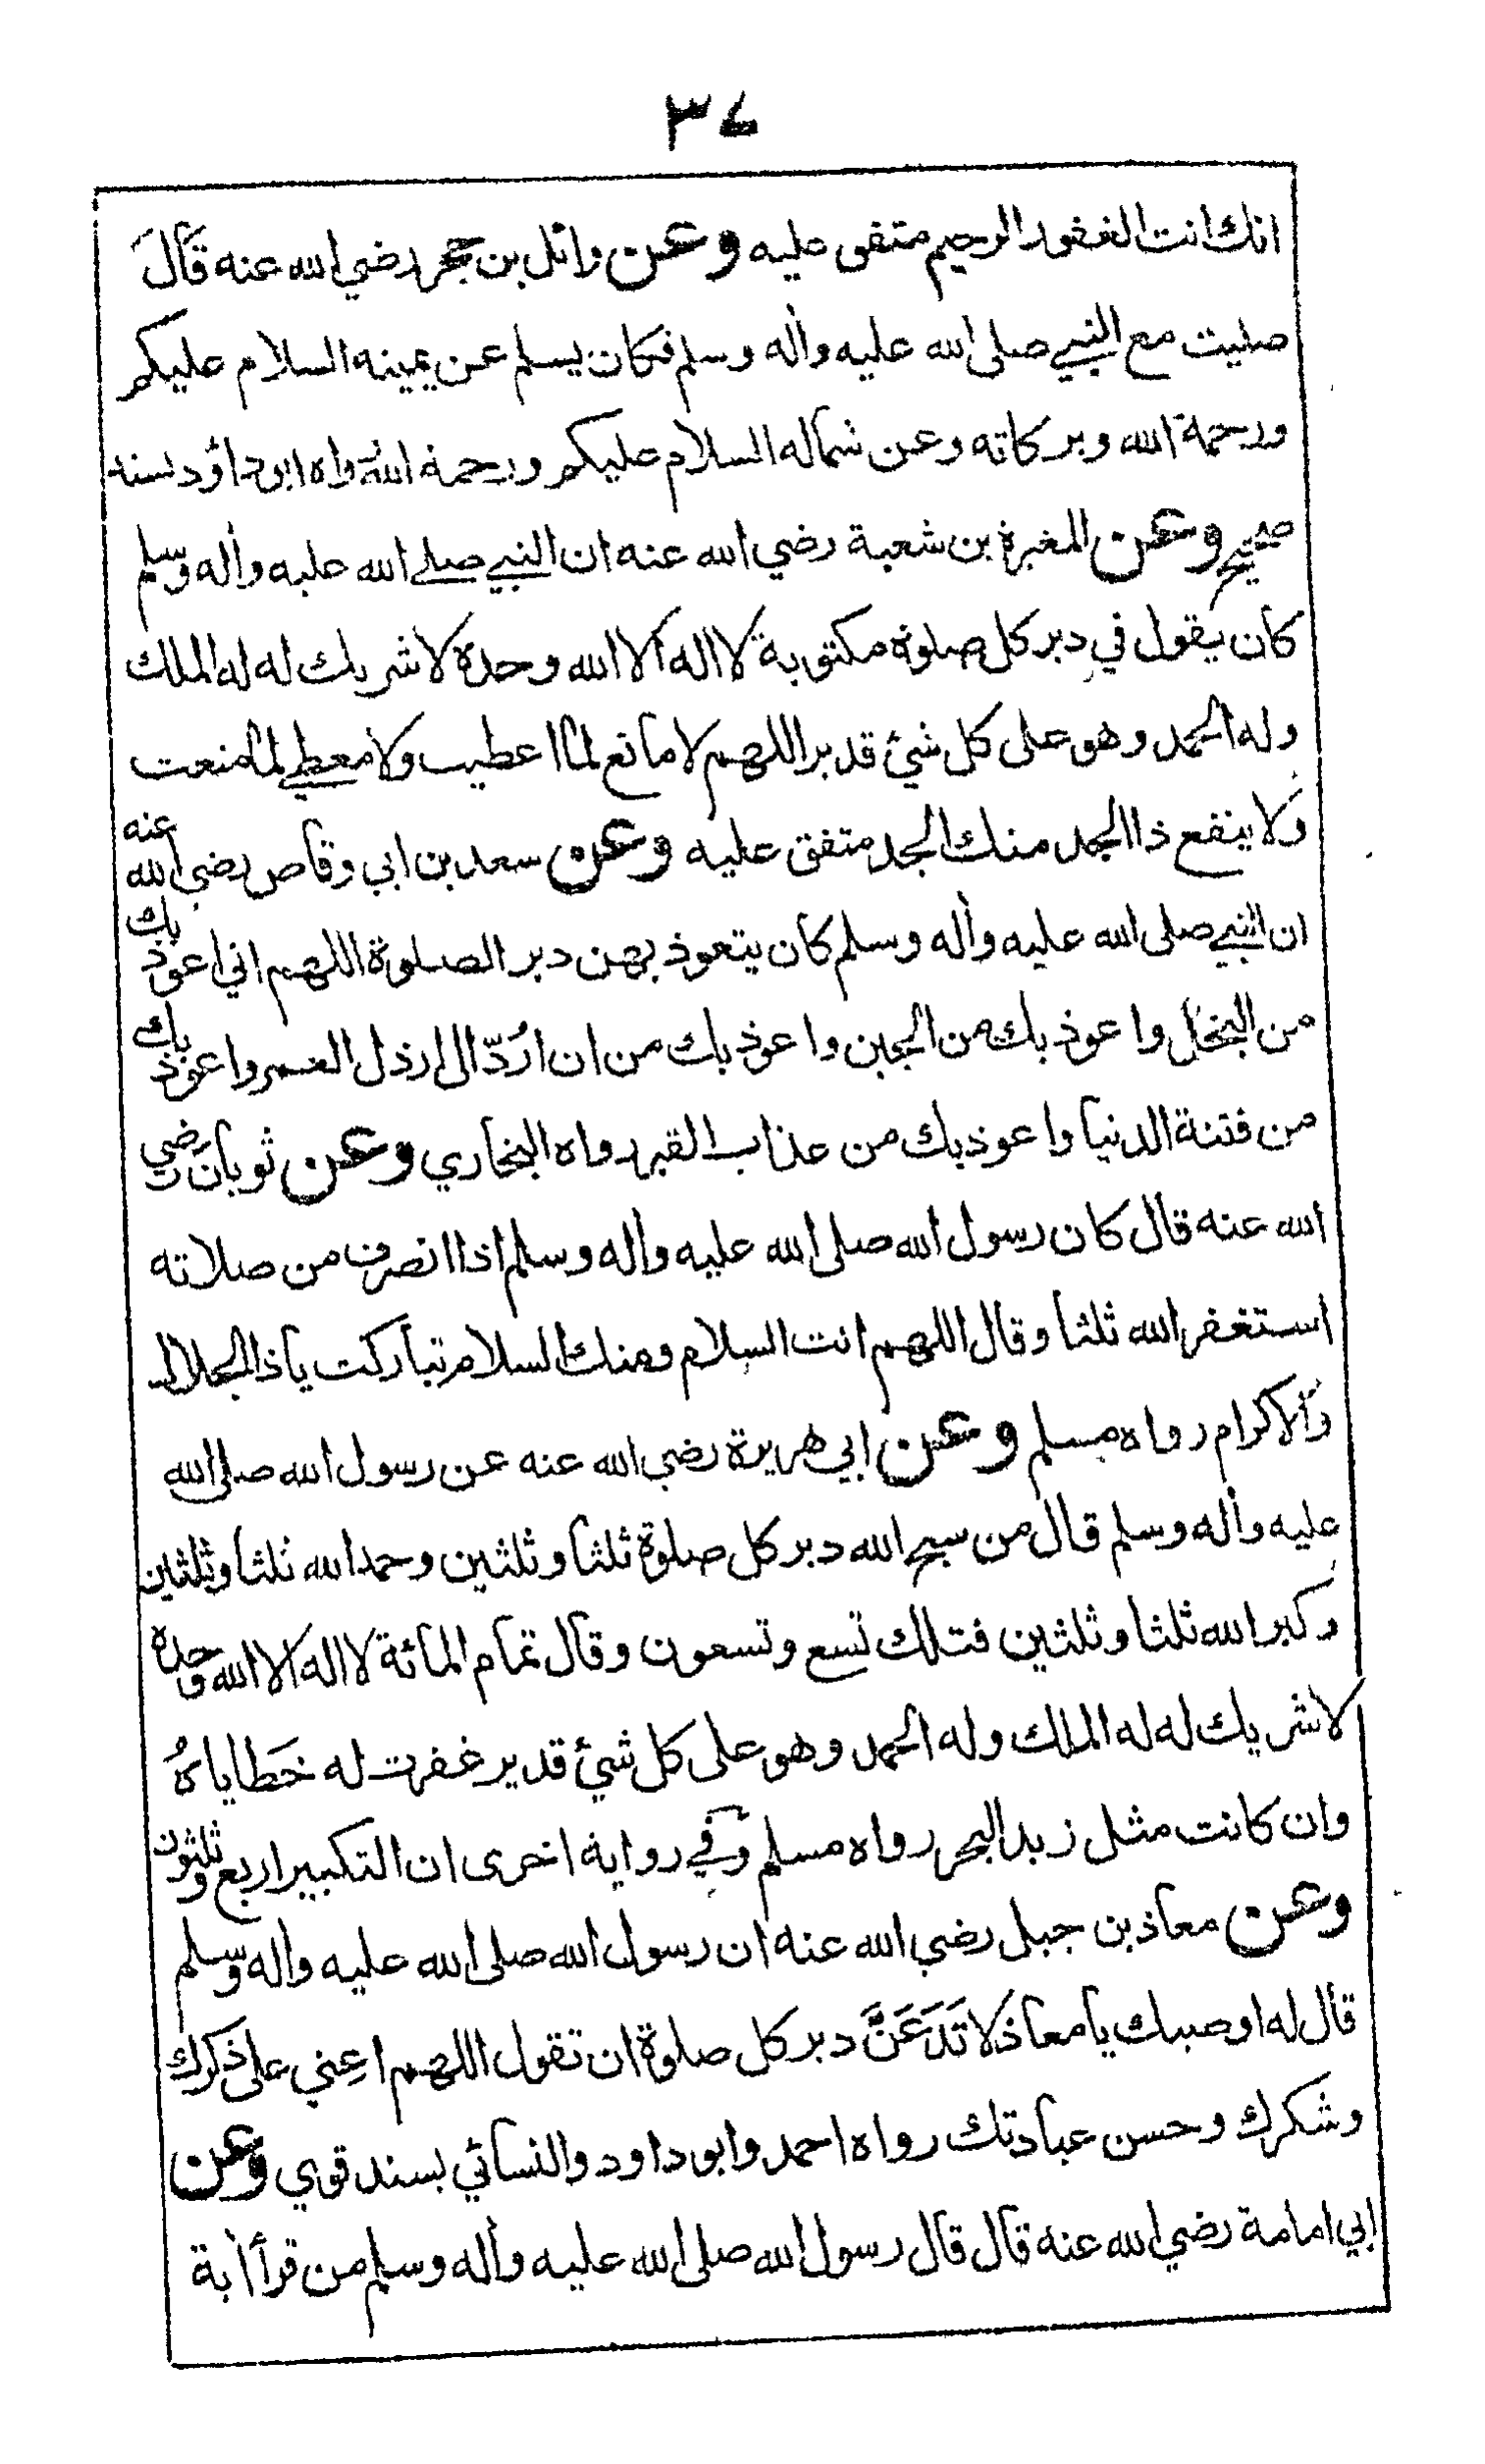 ٣٤
انك انت الغفور الرحيم متفق عليه وعن وائل بن حجر رضي الله عنه قَالَ
صليت مع النبي صلى الله عليه واٰله وسلم فكان يسلم عن يمينه السلام عليكم
ورحمة الله وبركاته وعن شماله السلام عليكم ورحمة الله رواه ابو داؤد بسند
صحيح وعن المغيرة بن شعبة رضي الله عنه ان النبي صلى الله عليه واٰله وسلم
كان يقول في دبر كل صلوة مكتوبة لا اله الا الله وحده لا شريك له له الملك
وله الحمد وهو على كل شئ قدير اللهم لا مانع لما اعطيت ولا معطي لما منعت
ولا ينفع ذا الجد منك الجد متفق عليه وعن سعد بن ابي وقاص رضي الله عنه
ان النبي صلى الله عليه واٰله وسلم كان يتعوذ بهن دبر الصلوة اللهم اني اعوذ بك
من البخل واعوذ بك من الجبن واعوذ بك من ان اُردّ الى ارذل العمر واعوذ بك
من فتنة الدنيا واعوذ بك من عذاب القبر رواه البخاري وعن ثوبان رضي
الله عنه قال كان رسول الله صلى الله عليه واٰله وسلم اذا انصرف من صلاته
استغفر الله ثلثا وقال اللهم انت السلام ومنك السلام تباركت يا ذا الجلال
والاكرام رواه مسلم وعن ابي هريرة رضي الله عنه عن رسول الله صلى الله
عليه واٰله وسلم قال من سبح الله دبر كل صلوة ثلثا وثلثين وحمد الله ثلثا وثلثين
وكبر الله ثلثا وثلثين فتلك تسع وتسعون وقال تمام المائة لا اله الا الله وحده
لا شريك له له الملك وله الحمد وهو على كل شئ قدير غفرت له خَطاياهُ
وان كانت مثل زبد البحر رواه مسلم وفي رواية اخرى ان التكبير اربع وثلثون
وعن معاذ بن جبل رضي الله عنه ان رسول الله صلى الله عليه واله وسلم
قال له اوصيك يا معاذ لا تَدَعَنَّ دبر كل صلوة ان تقول اللهم اعِني على ذكرك
وشكرك وحسن عبادتك رواه احمد وابو داود والنسائي بسند قوي وعن
ابي امامة رضي الله عنه قال قال رسول الله صلى الله عليه واٰله وسلم من قرأ اٰية